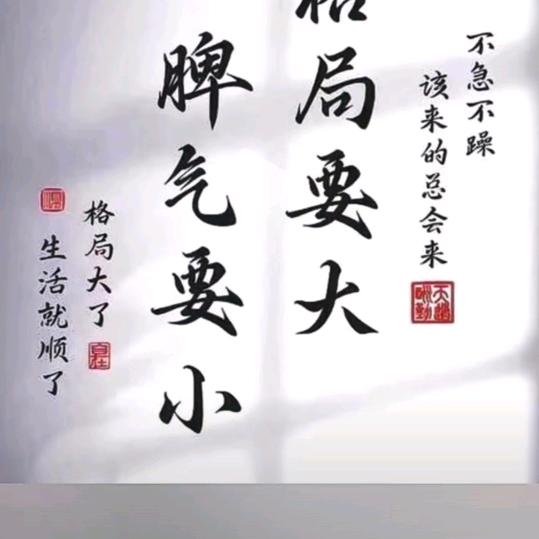 不急不躁
该来的总会来
格局要大
脾气要小
格局大了
生活就顺了
天道酬勤